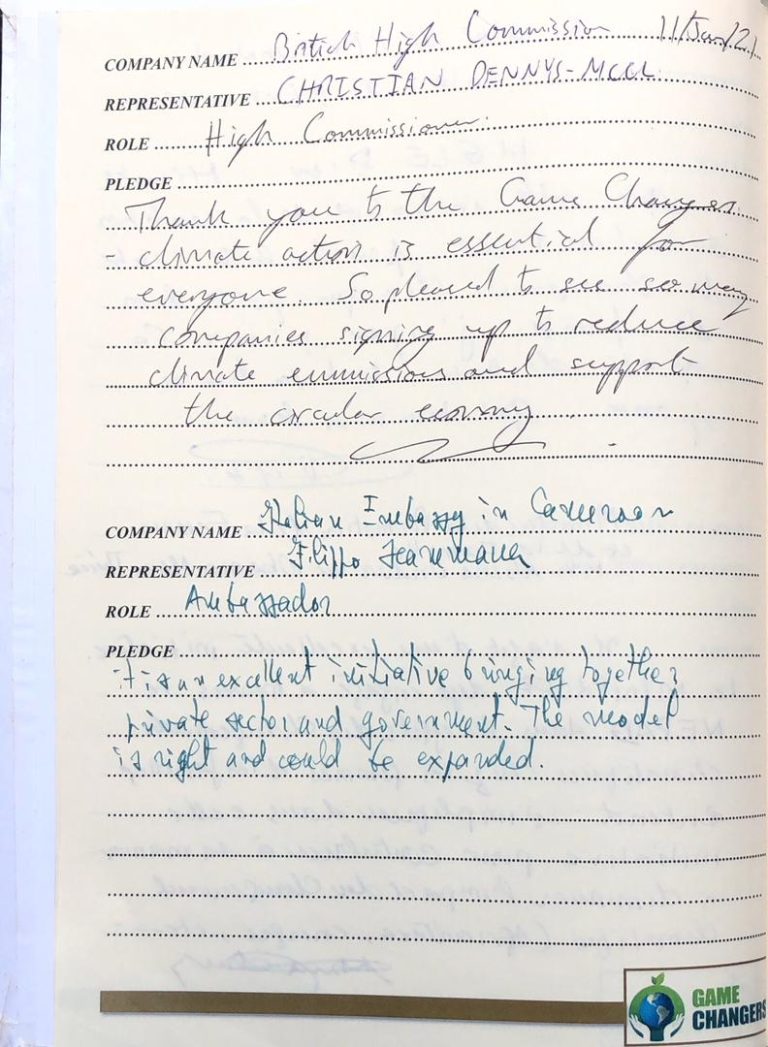 COMPANY NAME British High Commission 11/Jun/21
REPRESENTATIVE CHRISTIAN DENNYS-MCCL
ROLE High Commissioner.
PLEDGE
Thank you to the Game Changers
- climate action is essential for
everyone. So pleased to see so many
companies signing up to reduce
climate emmissions and support
the circular economy
COMPANY NAME Italian Embassy in Cameroon
REPRESENTATIVE Filippo Scammacca
ROLE Ambassador
PLEDGE
it is an excellent initiative bringing together
private sector and government. The model
is right and could be expanded.
GAME
CHANGERS